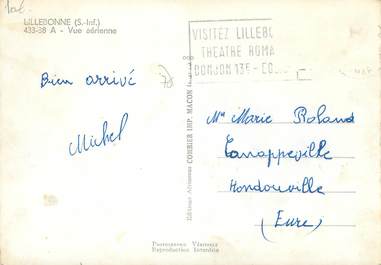 LILLEBONNE (S.-Inf.)
433-38 A - Vue aérienne
VISITEZ LILLEBO
THEATRE ROMA
DONJON 13E -
Bien arrivé
Michel
Editions Aériennes COMBIER IMP. MACON
Mme Marie Roland
Canappeville
Hondouville
(Eure)
Photographie Véritable
Reproduction Interdite